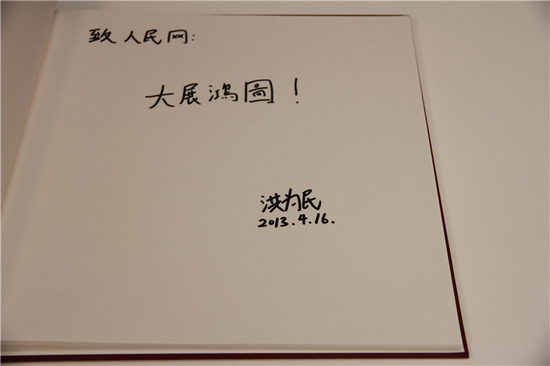 致人民网:
大展鴻圖!
洪为民
2013.4.16.